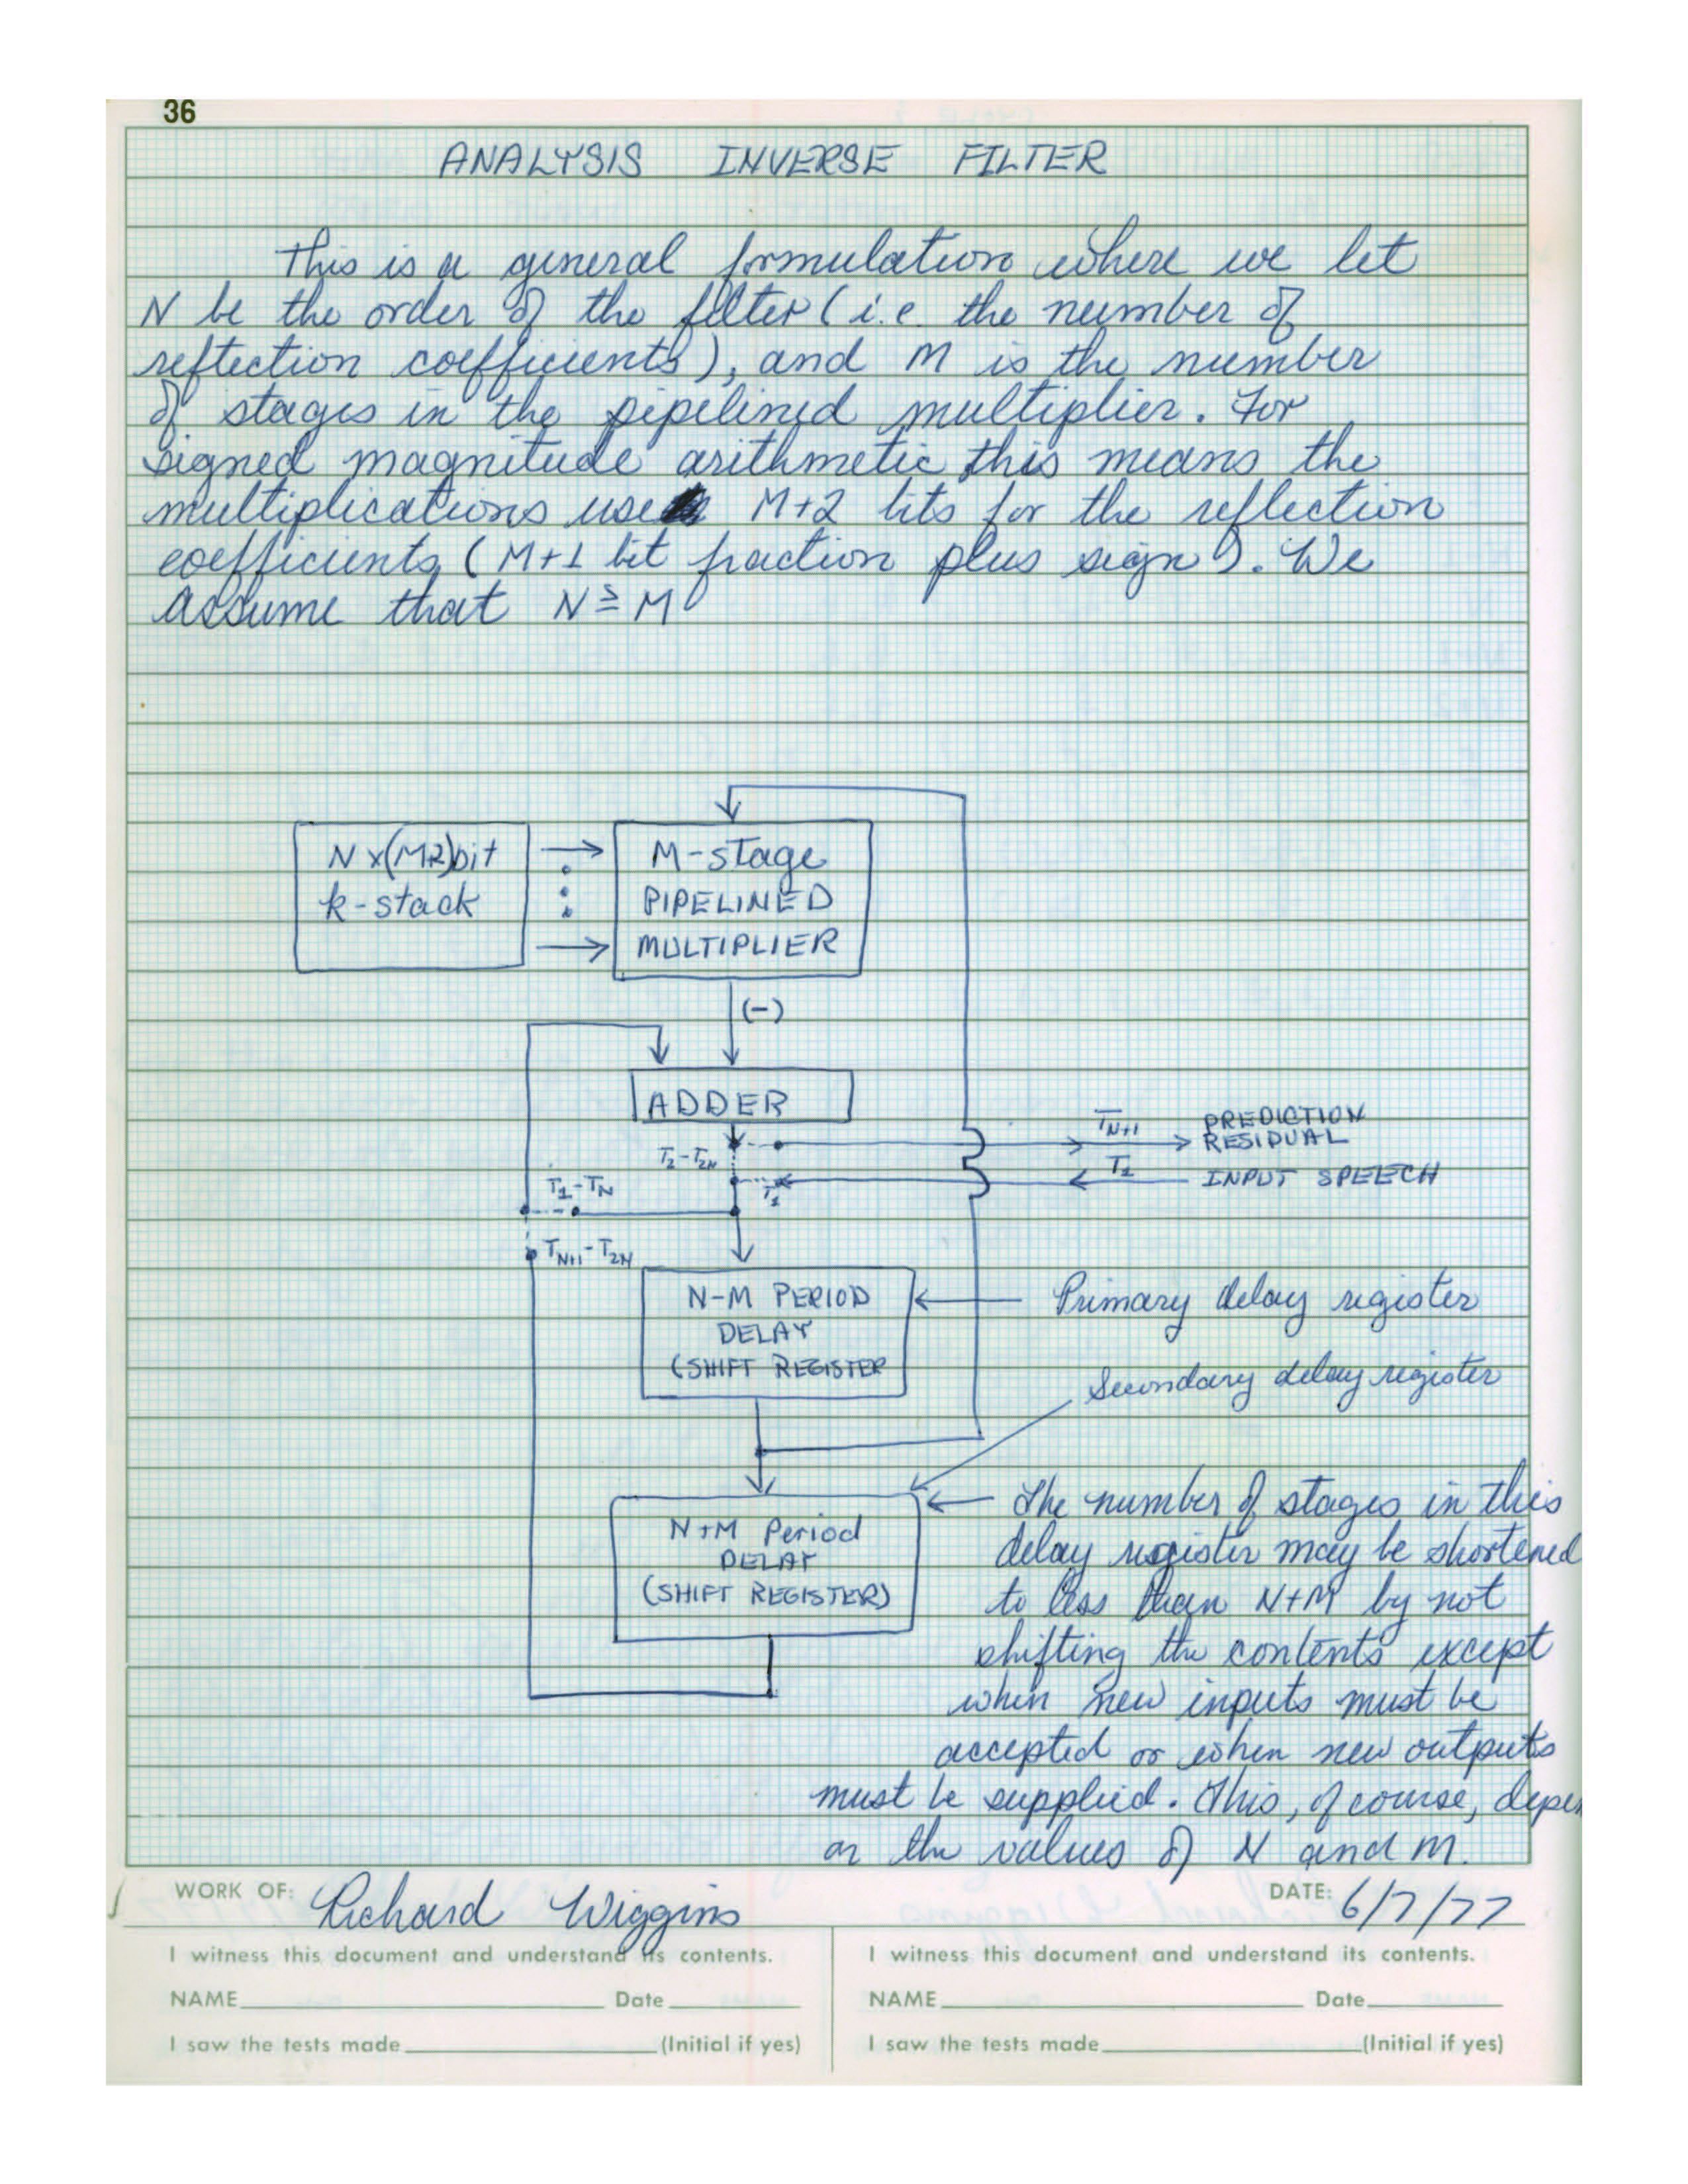 36
ANALYSIS INVERSE FILTER
This is a general formulation where we let
N be the order of the filter (i.e. the number of
reflection coefficients), and M is the number
of stages in the pipelined multiplier. For
signed magnitude arithmetic this means the
multiplications use M+2 bits for the reflection
coefficients (M+1 bit fraction plus sign). We
assume that N ≥ M
N x(M+2)bit
k-stack
M-stage
PIPELINED
MULTIPLIER
(-)
ADDER
T2-T2N
TN+1
PREDICTION
RESIDUAL
T1
INPUT SPEECH
T1
T1-TN
TN+1-T2N
N-M PERIOD
DELAY
(SHIFT REGISTER
Primary delay register
Secondary delay register
N+M Period
DELAY
(SHIFT REGISTER)
The number of stages in this
delay register may be shortened
to less than N+M by not
shifting the contents except
when new inputs must be
accepted or when new outputs
must be supplied. This, of course, depen
on the values of N and M.
WORK OF: Richard Wiggins
DATE: 6/7/77
I witness this document and understand its contents.
NAME Date
I saw the tests made (Initial if yes)
I witness this document and understand its contents.
NAME Date
I saw the tests made (Initial if yes)